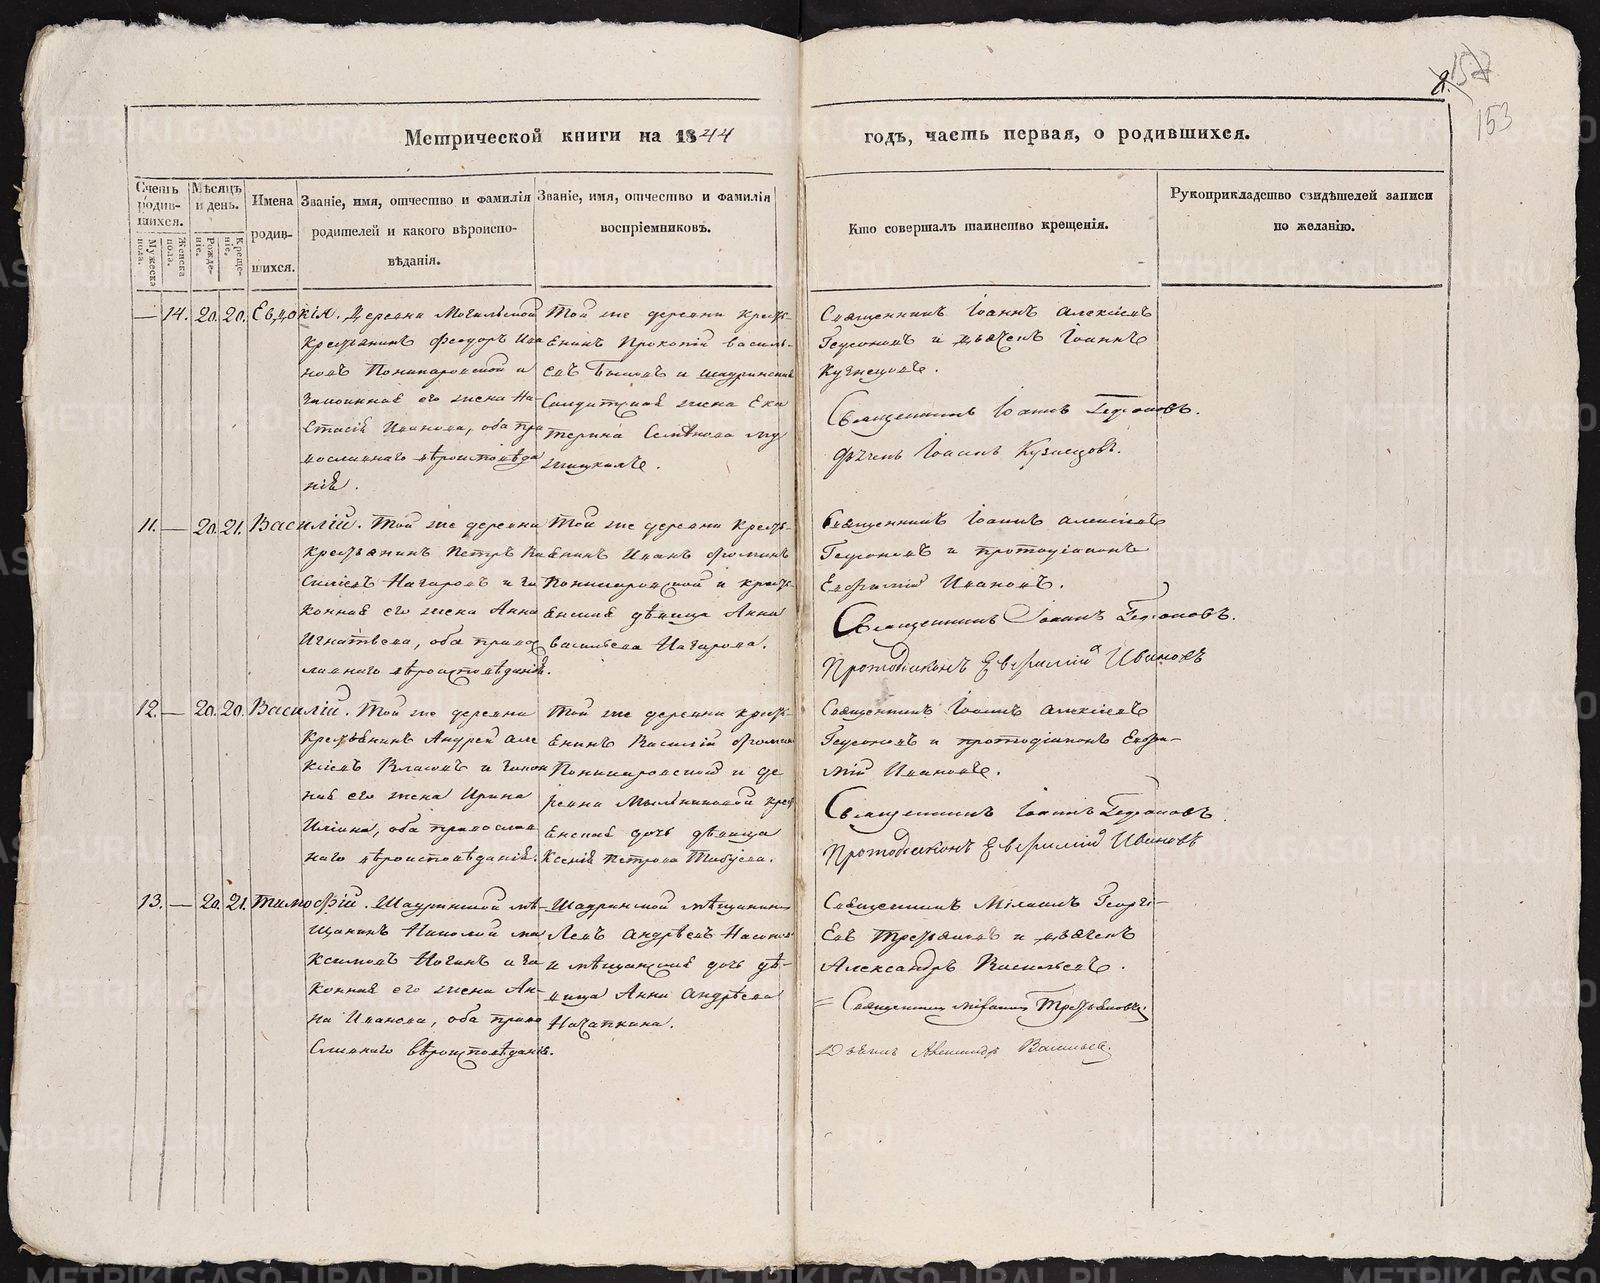 153
Метрической книги на 1844
годъ, часть первая, о родившихся.
Счетъ родив-шихся.
Мужеска пола.
Женска пола.
Мѣсяцъ и день.
Рожде-нiе.
Креще-нiе.
Имена
родив-
шихся.
Званiе, имя, отчество и фамилiя
родителей и какого вѣроиспо-
вѣданiя.
Званiе, имя, отчество и фамилiя
воспрiемниковъ.
Кто совершалъ таинство крещенiя.
Рукоприкладство свидѣтелей записи
по желанiю.
— 14. 20. 20. Евдокiя.
Деревни Могильской
крестьянинъ Феодоръ Ива
новъ Пономаровской и
законная его жена На-
стасiя Иванова, оба пра
вославнаго вѣроисповѣда
нiя.
Той же деревни кресть-
янинъ Прокопiй Василь-
евъ и Шадринская
Солдатская жена Ека
терина Семѣнова
Священникъ Iоаннъ Алексiевъ
и дьячекъ Iоаннъ
Кузнецовъ.
Священникъ Iоаннъ
дьячекъ Iоаннъ Кузнецовъ.
11. — 20. 21. Василiй.
Той же деревни
крестьянинъ Петръ Ва
силiевъ Нагаровъ и за
конная его жена Анна
Игнатьева, оба правос
лавнаго вѣроисповѣданiя.
Той же деревни кресть-
янинъ Иванъ Фоминъ
Пономаровской и кресть
янская дѣвица Анна
Васильева Нагарова.
Священникъ Iоаннъ Алексiевъ
и протодiаконъ
Евфимiй Ивановъ.
Священникъ Iоаннъ
Протодiаконъ Евфимiй Ивановъ
12. — 20. 20. Василiй.
Той же деревни
крестьянинъ Андрей Але
ксiевъ Власовъ и закон
ная его жена Ирина
оба православ
наго вѣроисповѣданiя.
Той же деревни кресть-
янинъ Василiй Фоминъ
Пономаровской и де
ревни Мыльниковой крест
янская дочь дѣвица
Ксенiя Петрова
Священникъ Iоаннъ Алексiевъ
и протодiаконъ Евфи-
мiй Ивановъ.
Священникъ Iоаннъ
Протодiаконъ Евфимiй Ивановъ
13. — 20. 21. Тимофiй.
Шадринской мѣ-
щанинъ Николай Ма
ксимовъ Ногинъ и за
конная его жена Ан-
на Иванова, оба право
славнаго вѣроисповѣданiя.
Шадринской мѣщанинъ
Левъ Андрѣевъ
и мѣщанская дочь дѣ-
вица Анна Андрѣева
Священникъ Михаилъ Георгi-
евъ Третьяковъ и дьячекъ
Александръ Васильевъ.
Священникъ Михаилъ Третьяковъ
Дьячекъ Александръ Васильевъ.
METRIKI.GASO-URAL.RU